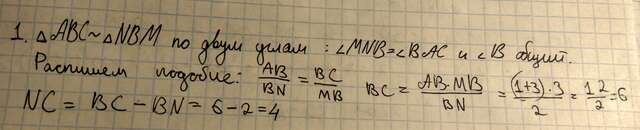 1. △ABC ~ △NBM по двум углам: ∠MNB = ∠BAC и ∠B общий.
Распишем подобие: AB/BN = BC/MB BC = AB·MB/BN = (1+3)·3/2 = 12/2 = 6
NC = BC − BN = 6 − 2 = 4